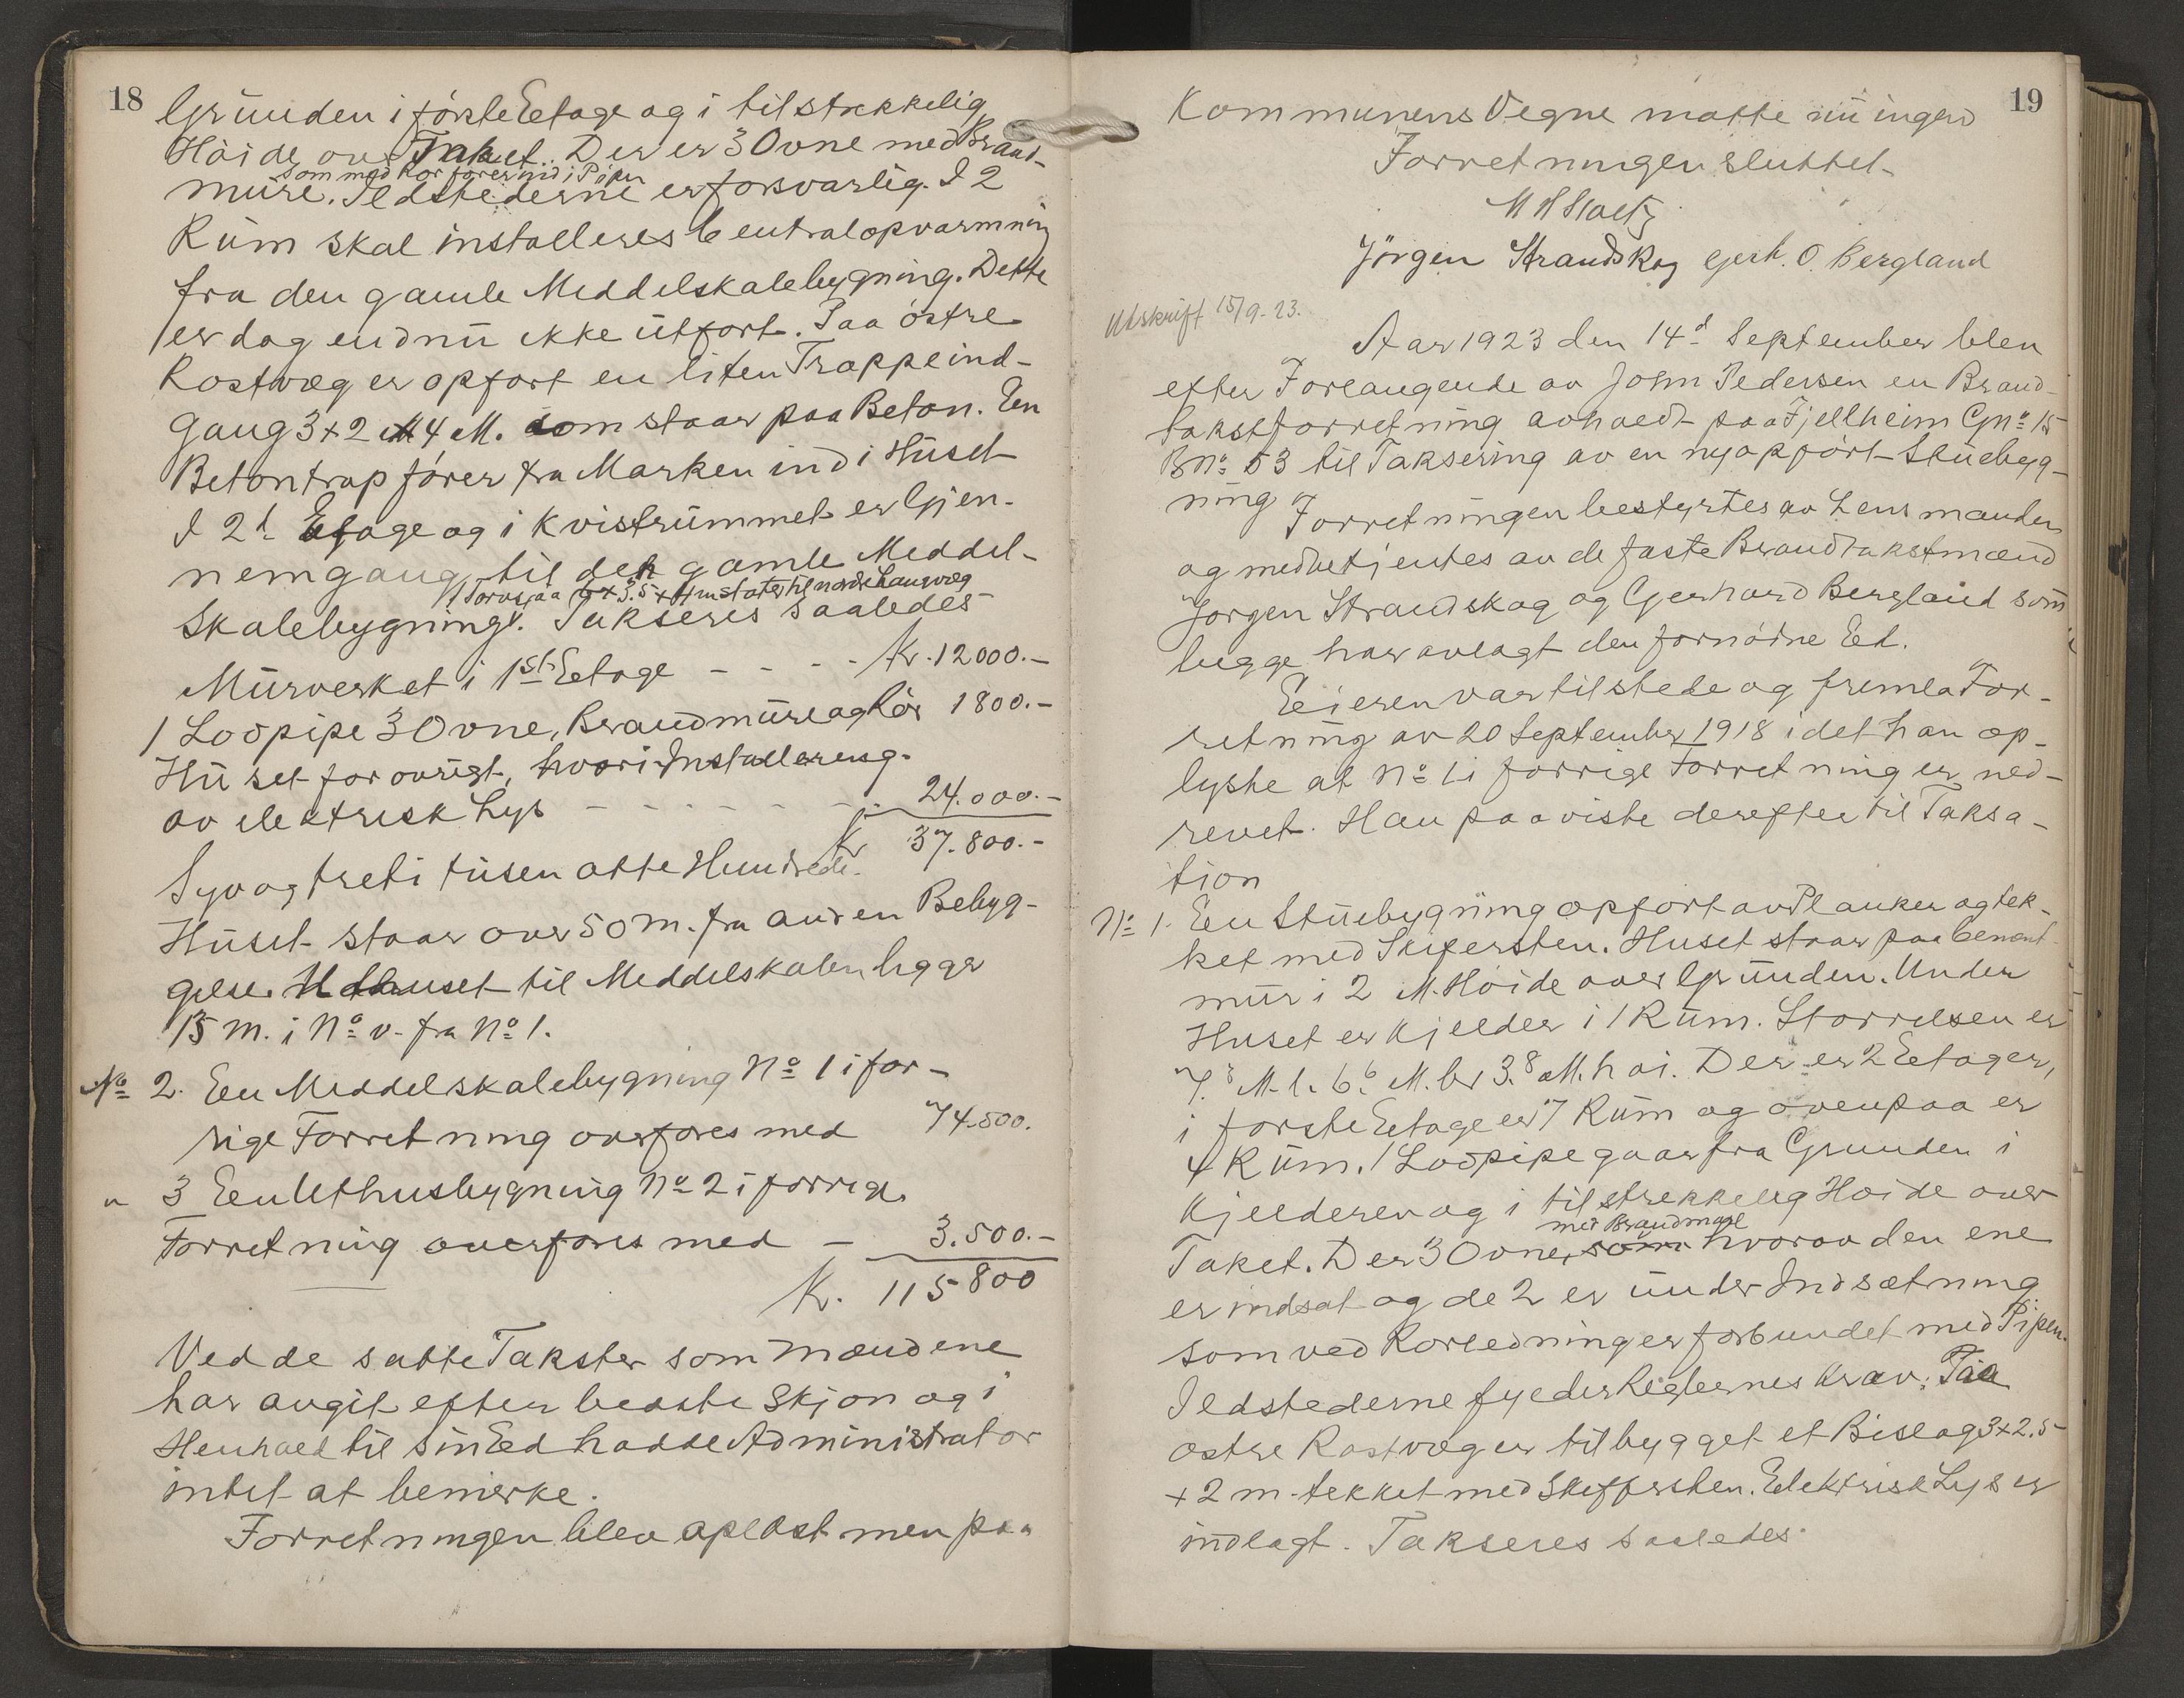 18
Grunden i første Eetage og i tilstrekkelig
Høide over Taket. Der er 3 Ovne med Brand-
som med Rør fører ind i Pipen
mure. Ildstederne er forsvarlig. I 2
Rum skal installeres Centralopvarmning
fra den gamle Meddelskolebygning. Dette
er dog endnu ikke utført. Paa østre
Rostvæg er opført en liten Trappeind-
gang 3 x 2 x 4 M. som staar paa Beton. En
Betontrap fører fra Marken ind i Huset
I 2d Etage og i Kvistrummet er Gjen-
nemgang til den gamle Meddel-
1 Torvsjaa 6 x 3.5 x 4 m støter til nordre Langvæg
skolebygning. Takseres saaledes
Murverket i 1ste Eetage - - - - Kr. 12000.-
1 Loopipe 3 Ovne, Brandmure og Rør 1800.-
Huset for øvrigt, hvori Installering
av elektrisk Lys - - - - - - 24.000.-
Kr 37.800.-
Syv og treti tusen otte Hundrede.
Huset staar over 50 m. fra anden Bebyg-
gelse. Uthuset til Meddelskolen ligger
15 m. i No v. fra No 1.
No 2. Een Meddelskolebygning No 1 i for-
rige Forretning overføres med 74.500.
" 3 Een Uthusbygning No 2 i forrige
Forretning overføres med - 3.500.-
Kr. 115800
Ved de satte Takster som Mændene
har avgit efter bedste Skjøn og i
Henhold til sin Eed hadde Administrator
intet at bemerke.
Forretningen blev oplæst men paa
19
Kommunens Vegne møtte nu ingen
Forretningen sluttet.
M H Stoltz
Jørgen Strandskog Gerh. O. Bergland
Utskrift 15/9-23.
Aar 1923 den 14d September blev
efter Forlangende av John Pedersen en Brand-
takstforretning avholdt paa Fjellheim Gno 15
Bno 53 til Taksering av en nyopført Stuebyg-
ning
Forretningen bestyrtes av Lensmanden
og medbetjentes av de faste Brandtakstmænd
Jørgen Strandskog og Gerhard Bergland som
begge har avlagt den fornødne Ed.
Eieren var tilstede og fremla For-
retning av 20 September 1918 idet han op-
lyste at No 1 i forrige Forretning er ned-
revet. Han paaviste derefter til Taksa-
tion
No 1. Een Stuebygning opført av Planker og tek-
ket med Skifersten. Huset staar paa Cement-
mur i 2 M. Høide over Grunden. Under
Huset er Kjelder i 1 Rum. Størrelsen er
7.8 M. l. 6.6 M. br 3.8 M. høi. Der er 2 Eetager,
i første Eetage er 7 Rum og ovenpaa er
4 Rum. 1 Loopipe gaar fra Grunden i
Kjelderen og i tilstrekkelig Høide over
med Brandmure
Taket. Der 3 Ovne, som hvorav den ene
er indsat og de 2 er under Indsætning
som ved Rørledning er forbundet med Pipen.
Ildstederne fyeder Reglernes Krav. Paa
østre Rostvæg er tilbygget et Bislag 3 x 2.5
x 2 m. tekket med Skiffersten. Eelektrisk Lys er
indlagt. Takseres saaledes